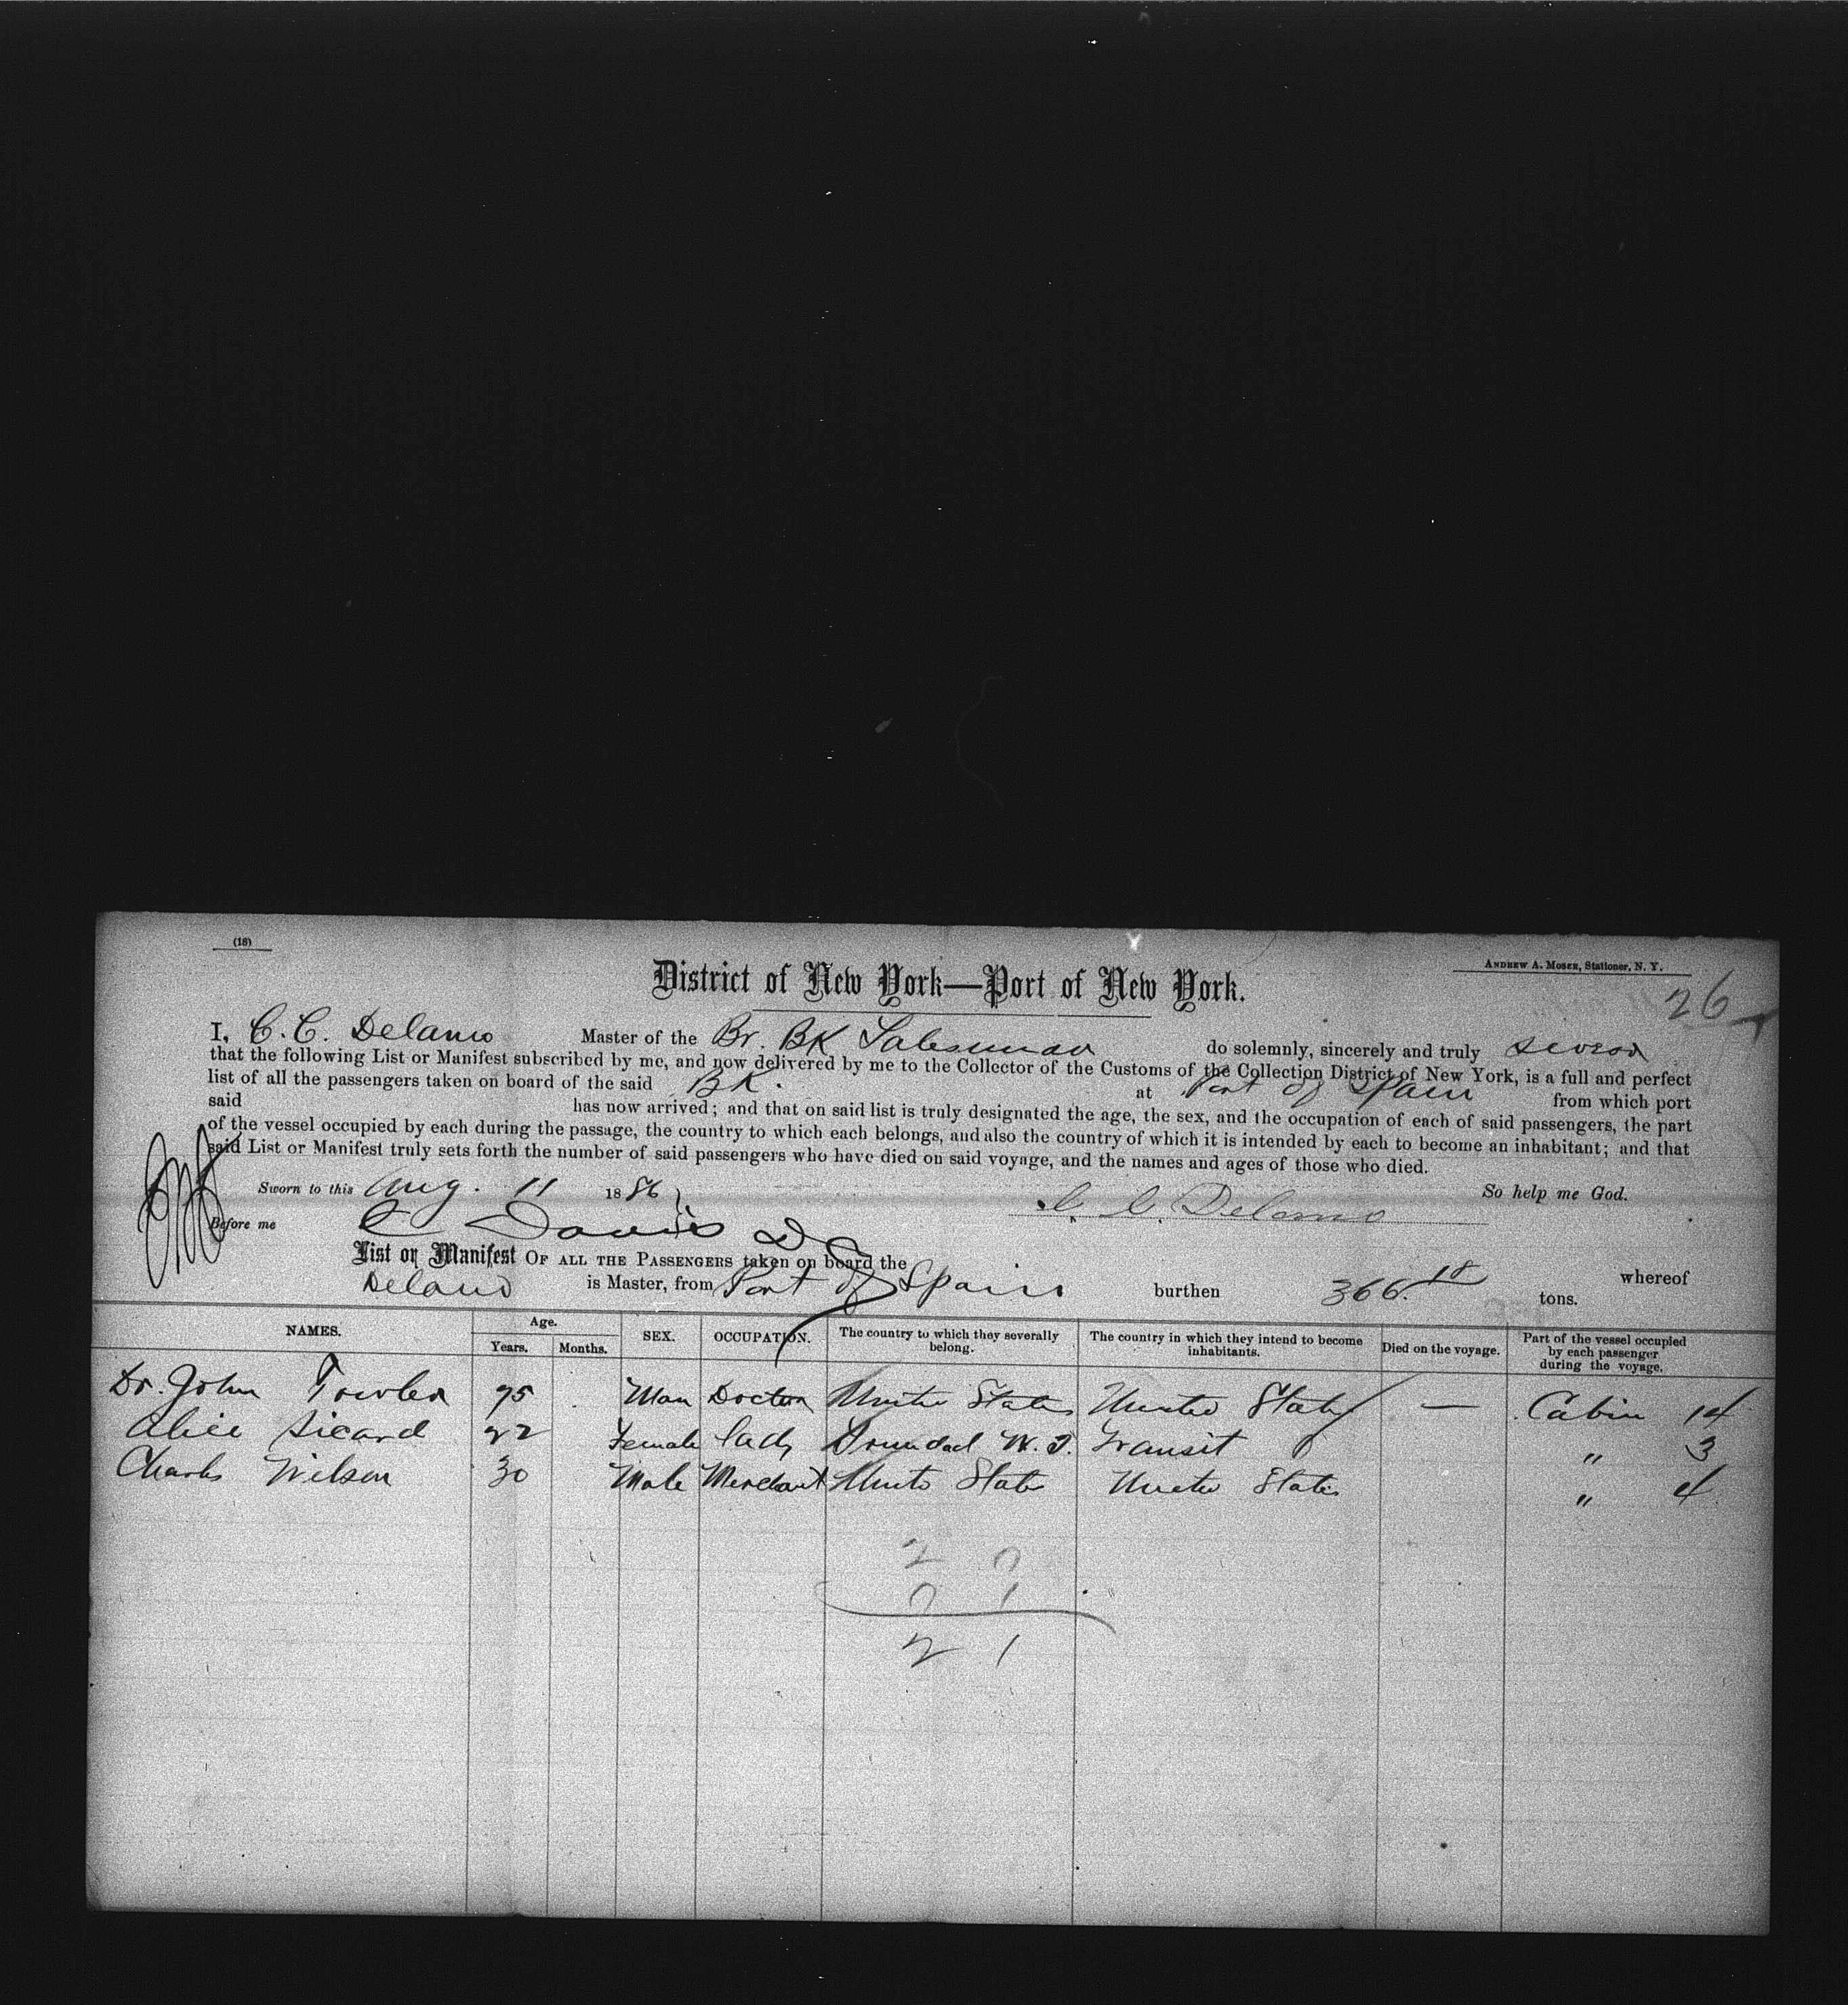 (18)
ANDREW A. MOSER, Stationer, N. Y.
District of New York—Port of New York.
26
I, C. C. Delano Master of the Br. BK Salesman do solemnly, sincerely and truly swear
that the following List or Manifest subscribed by me, and now delivered by me to the Collector of the Customs of the Collection District of New York, is a full and perfect
list of all the passengers taken on board of the said BK. at Port of Spain from which port
said has now arrived; and that on said list is truly designated the age, the sex, and the occupation of each of said passengers, the part
of the vessel occupied by each during the passage, the country to which each belongs, and also the country of which it is intended by each to become an inhabitant; and that
said List or Manifest truly sets forth the number of said passengers who have died on said voyage, and the names and ages of those who died.
Sworn to this Aug. 11 1886 So help me God.
Before me C Davis C. C. Delano
List or Manifest OF ALL THE PASSENGERS taken on board the whereof
Delano is Master, from Port of Spain burthen 366. 18 tons.
NAMES. Age. Years. Months. SEX. OCCUPATION. The country to which they severally belong. The country in which they intend to become inhabitants. Died on the voyage. Part of the vessel occupied by each passenger during the voyage.
Dr. John Towler 75 Man Doctor United States United States — Cabin 14
Alice Sicard 22 Female lady Trinidad W. I. Transit " 3
Charles Wilson 30 Male Merchant United States United States " 4
2 0
0 1
2 1